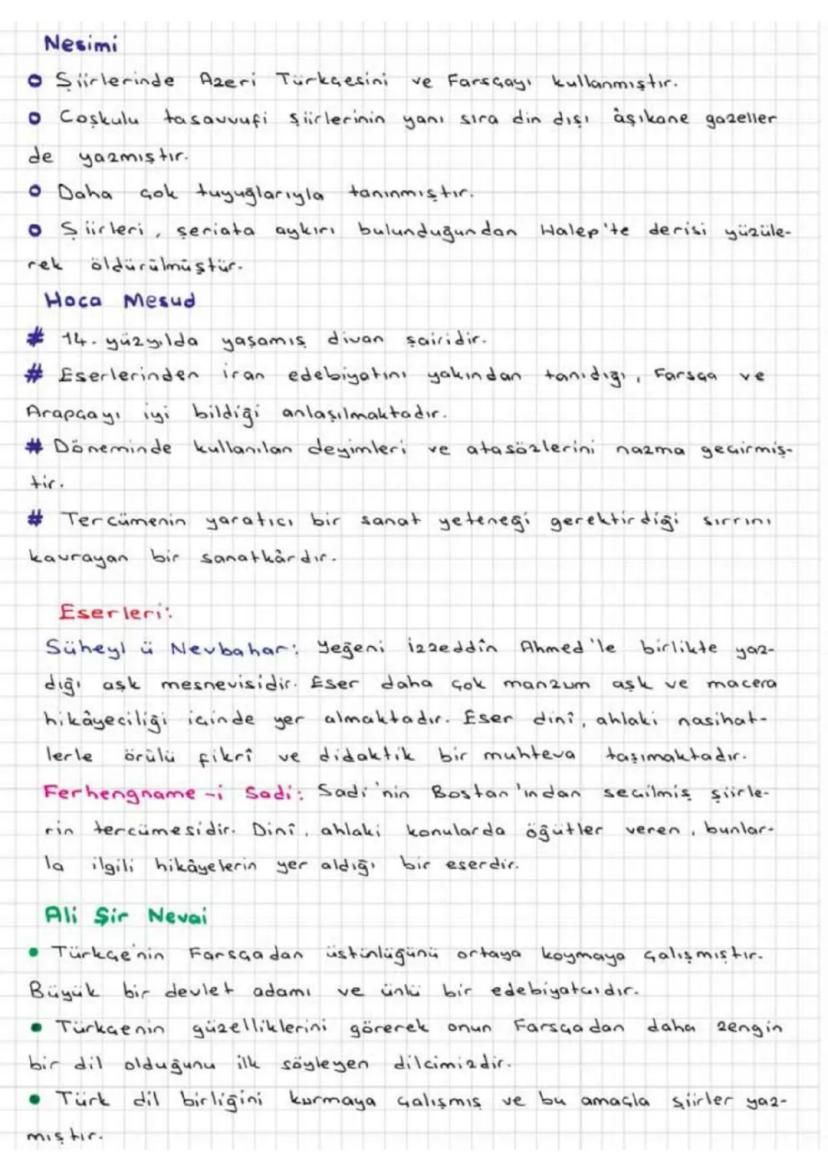 Nesimi
Şiirlerinde Azeri Türkçesini ve Farsçayı kullanmıştır.
Coşkulu tasavvufi şiirlerinin yanı sıra din dışı âşıkane gazeller
de yazmıştır.
Daha çok tuyuğlarıyla tanınmıştır.
Şiirleri, şeriata aykırı bulunduğundan Halep'te derisi yüzüle-
rek öldürülmüştür.
Hoca Mesud
# 14. yüzyılda yaşamış divan şairidir.
# Eserlerinden İran edebiyatını yakından tanıdığı, Farsça ve
Arapçayı iyi bildiği anlaşılmaktadır.
# Döneminde kullanılan deyimleri ve atasözlerini nazma geçirmiş-
tir.
# Tercümenin yaratıcı bir sanat yeteneği gerektirdiği sırrını
kavrayan bir sanatkârdır.
Eserleri:
Süheyl ü Nevbahar: Yeğeni İzzeddîn Ahmed'le birlikte yaz-
dığı aşk mesnevisidir. Eser daha çok manzum aşk ve macera
hikâyeciliği içinde yer almaktadır. Eser dinî, ahlaki nasihat-
lerle örülü fikrî ve didaktik bir muhteva taşımaktadır.
Ferhengname-i Sadi: Sadi'nin Bostan'ından seçilmiş şiirle-
rin tercümesidir. Dinî, ahlaki konularda öğütler veren, bunlar-
la ilgili hikâyelerin yer aldığı bir eserdir.
Ali Şir Nevai
• Türkçe'nin Farsçadan üstünlüğünü ortaya koymaya çalışmıştır.
Büyük bir devlet adamı ve ünlü bir edebiyatçıdır.
• Türkçenin güzelliklerini görerek onun Farsçadan daha zengin
bir dil olduğunu ilk söyleyen dilcimizdir.
• Türk dil birliğini kurmaya çalışmış ve bu amaçla şiirler yaz-
mıştır.